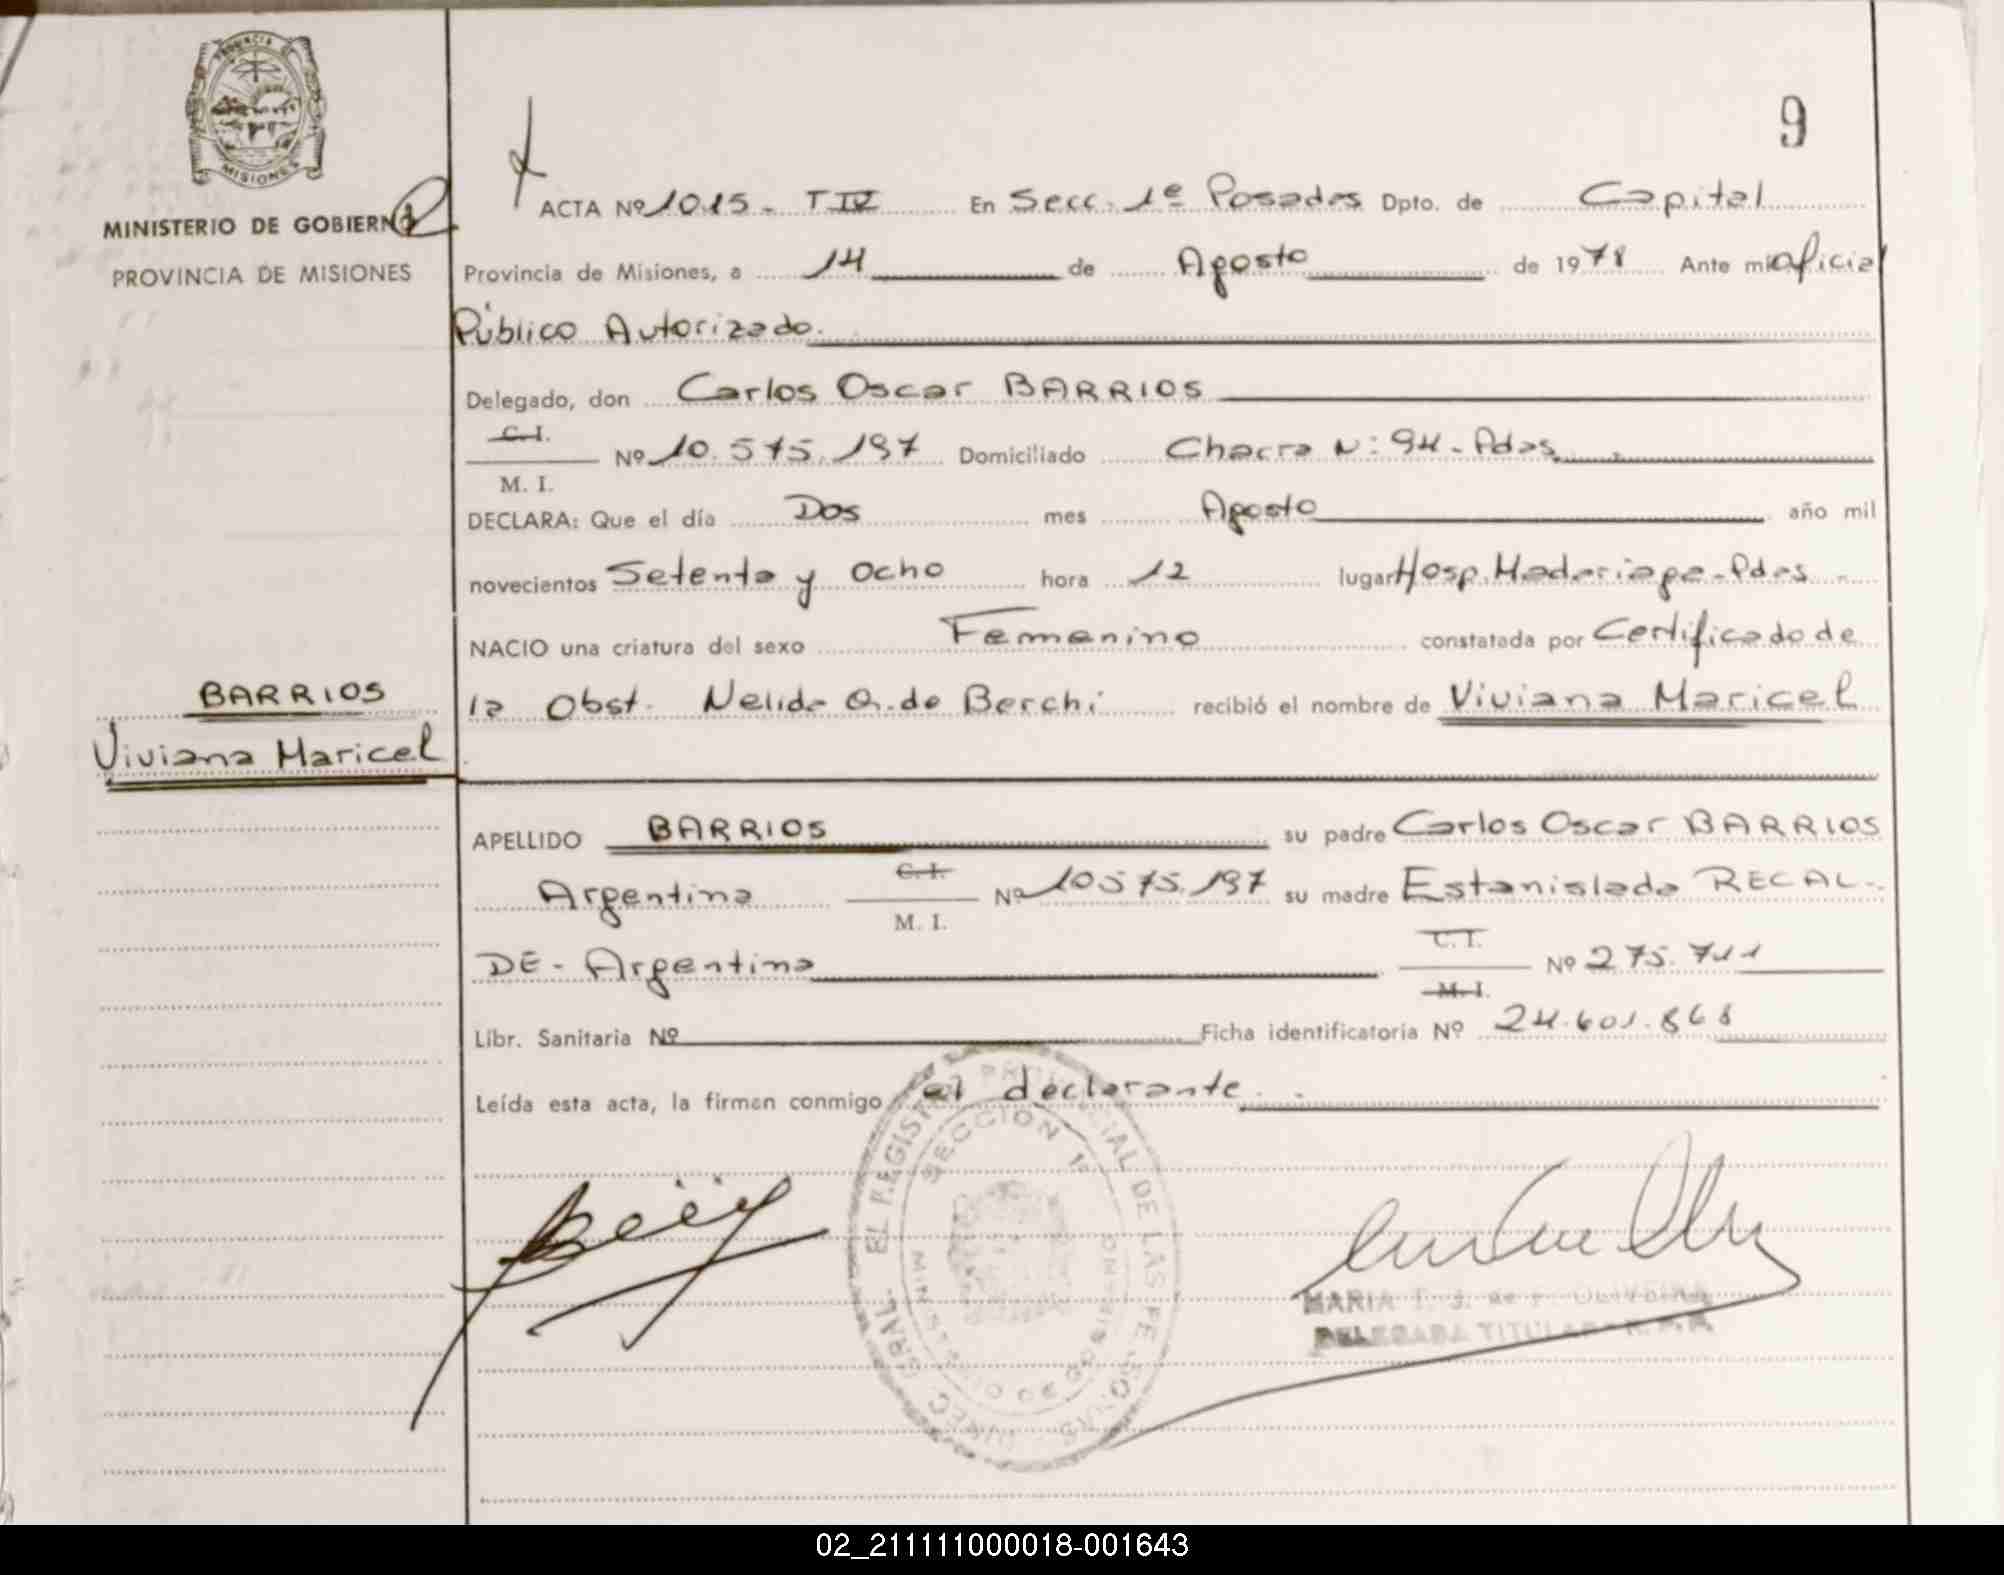 PROVINCIA DE
MISIONES
MINISTERIO DE GOBIERNO
PROVINCIA DE MISIONES
9
ACTA Nº 1015 - T IV En Secc. 1ª Posadas Dpto. de Capital
Provincia de Misiones, a 14 de Agosto de 1978 Ante mi oficial
Público Autorizado.
Delegado, don Carlos Oscar BARRIOS
C. I.
Nº 10.575.197 Domiciliado Chacra Nº 94 - Pdas.
M. I.
DECLARA: Que el día Dos mes Agosto año mil
novecientos Setenta y Ocho hora 12 lugar Hosp. Madariaga - Pdas
NACIO una criatura del sexo Femenino constatada por Certificado de
la Obst. Nelida Q. de Berchi recibió el nombre de Viviana Maricel
BARRIOS
Viviana Maricel
APELLIDO BARRIOS su padre Carlos Oscar BARRIOS
Argentina C. I. Nº 10575.197 su madre Estanislada RECAL-
M. I.
DE - Argentina C. I. Nº 275.711
M. I.
Libr. Sanitaria Nº Ficha identificatoria Nº 24.601.868
Leída esta acta, la firman conmigo el declarante.
SECCION 1ª
MINISTERIO DE GOBIERNO
MARIA T. J. de F. OLIVEIRA
DELEGADA TITULAR R. P. P.
02_211111000018-001643